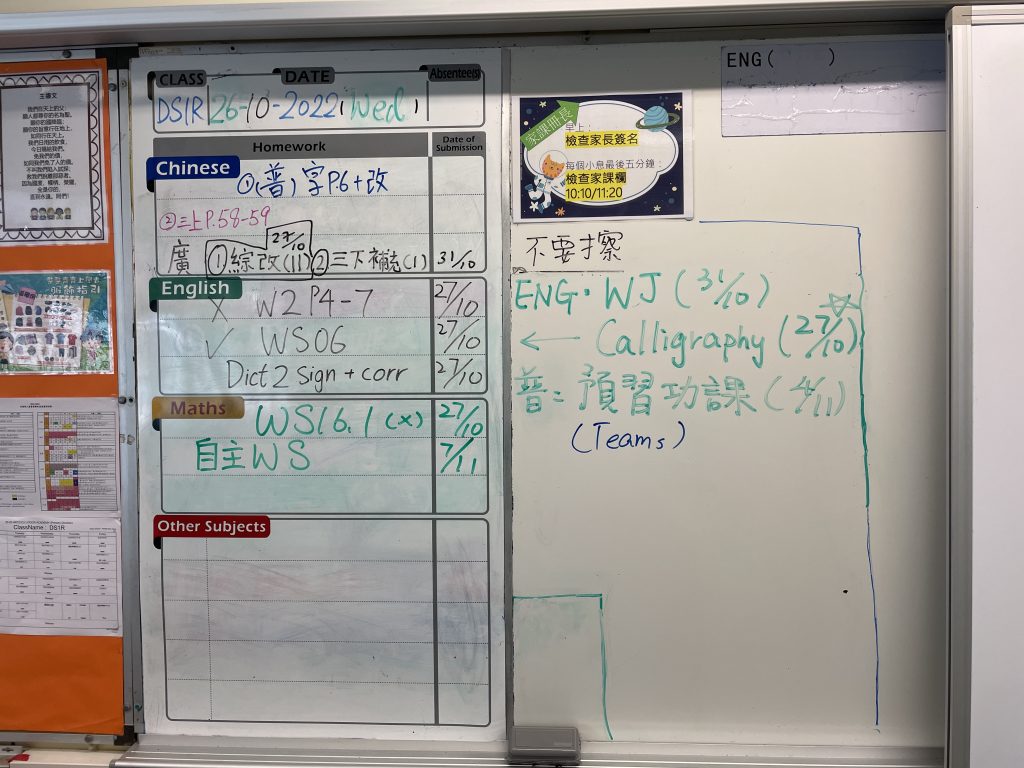 主禱文
我們在天上的父：
願人都尊你的名為聖。
願你的國降臨；
願你的旨意行在地上，
如同行在天上。
我們日用的飲食，
今日賜給我們。
免我們的債，
如同我們免了人的債。
不叫我們陷入試探；
救我們脫離兇惡。
因為國度、權柄、榮耀，
全是你的，
直到永遠。阿們！
服飾指引
ClassName : DS1R
CLASS
DATE
Absentee(s)
DS1R 26-10-2022, Wed
Homework
Date of Submission
Chinese
①(普) 字P.6+改
②三上P.58-59
27/10
廣 ①綜改(11) ②三下補充(1) 31/10
English
X W2 P4-7 27/10
✓ WS06 27/10
Dict 2 sign + corr 27/10
Maths
WS16.1 (x) 27/10
自主WS 7/11
Other Subjects
ENG( )
家課冊長
早上：
檢查家長簽名
每個小息最後五分鐘：
檢查家課欄
10:10/11:20
不要擦
ENG. WJ (31/10)
← Calligraphy (27/10)
普: 預習功課 (4/11)
(Teams)